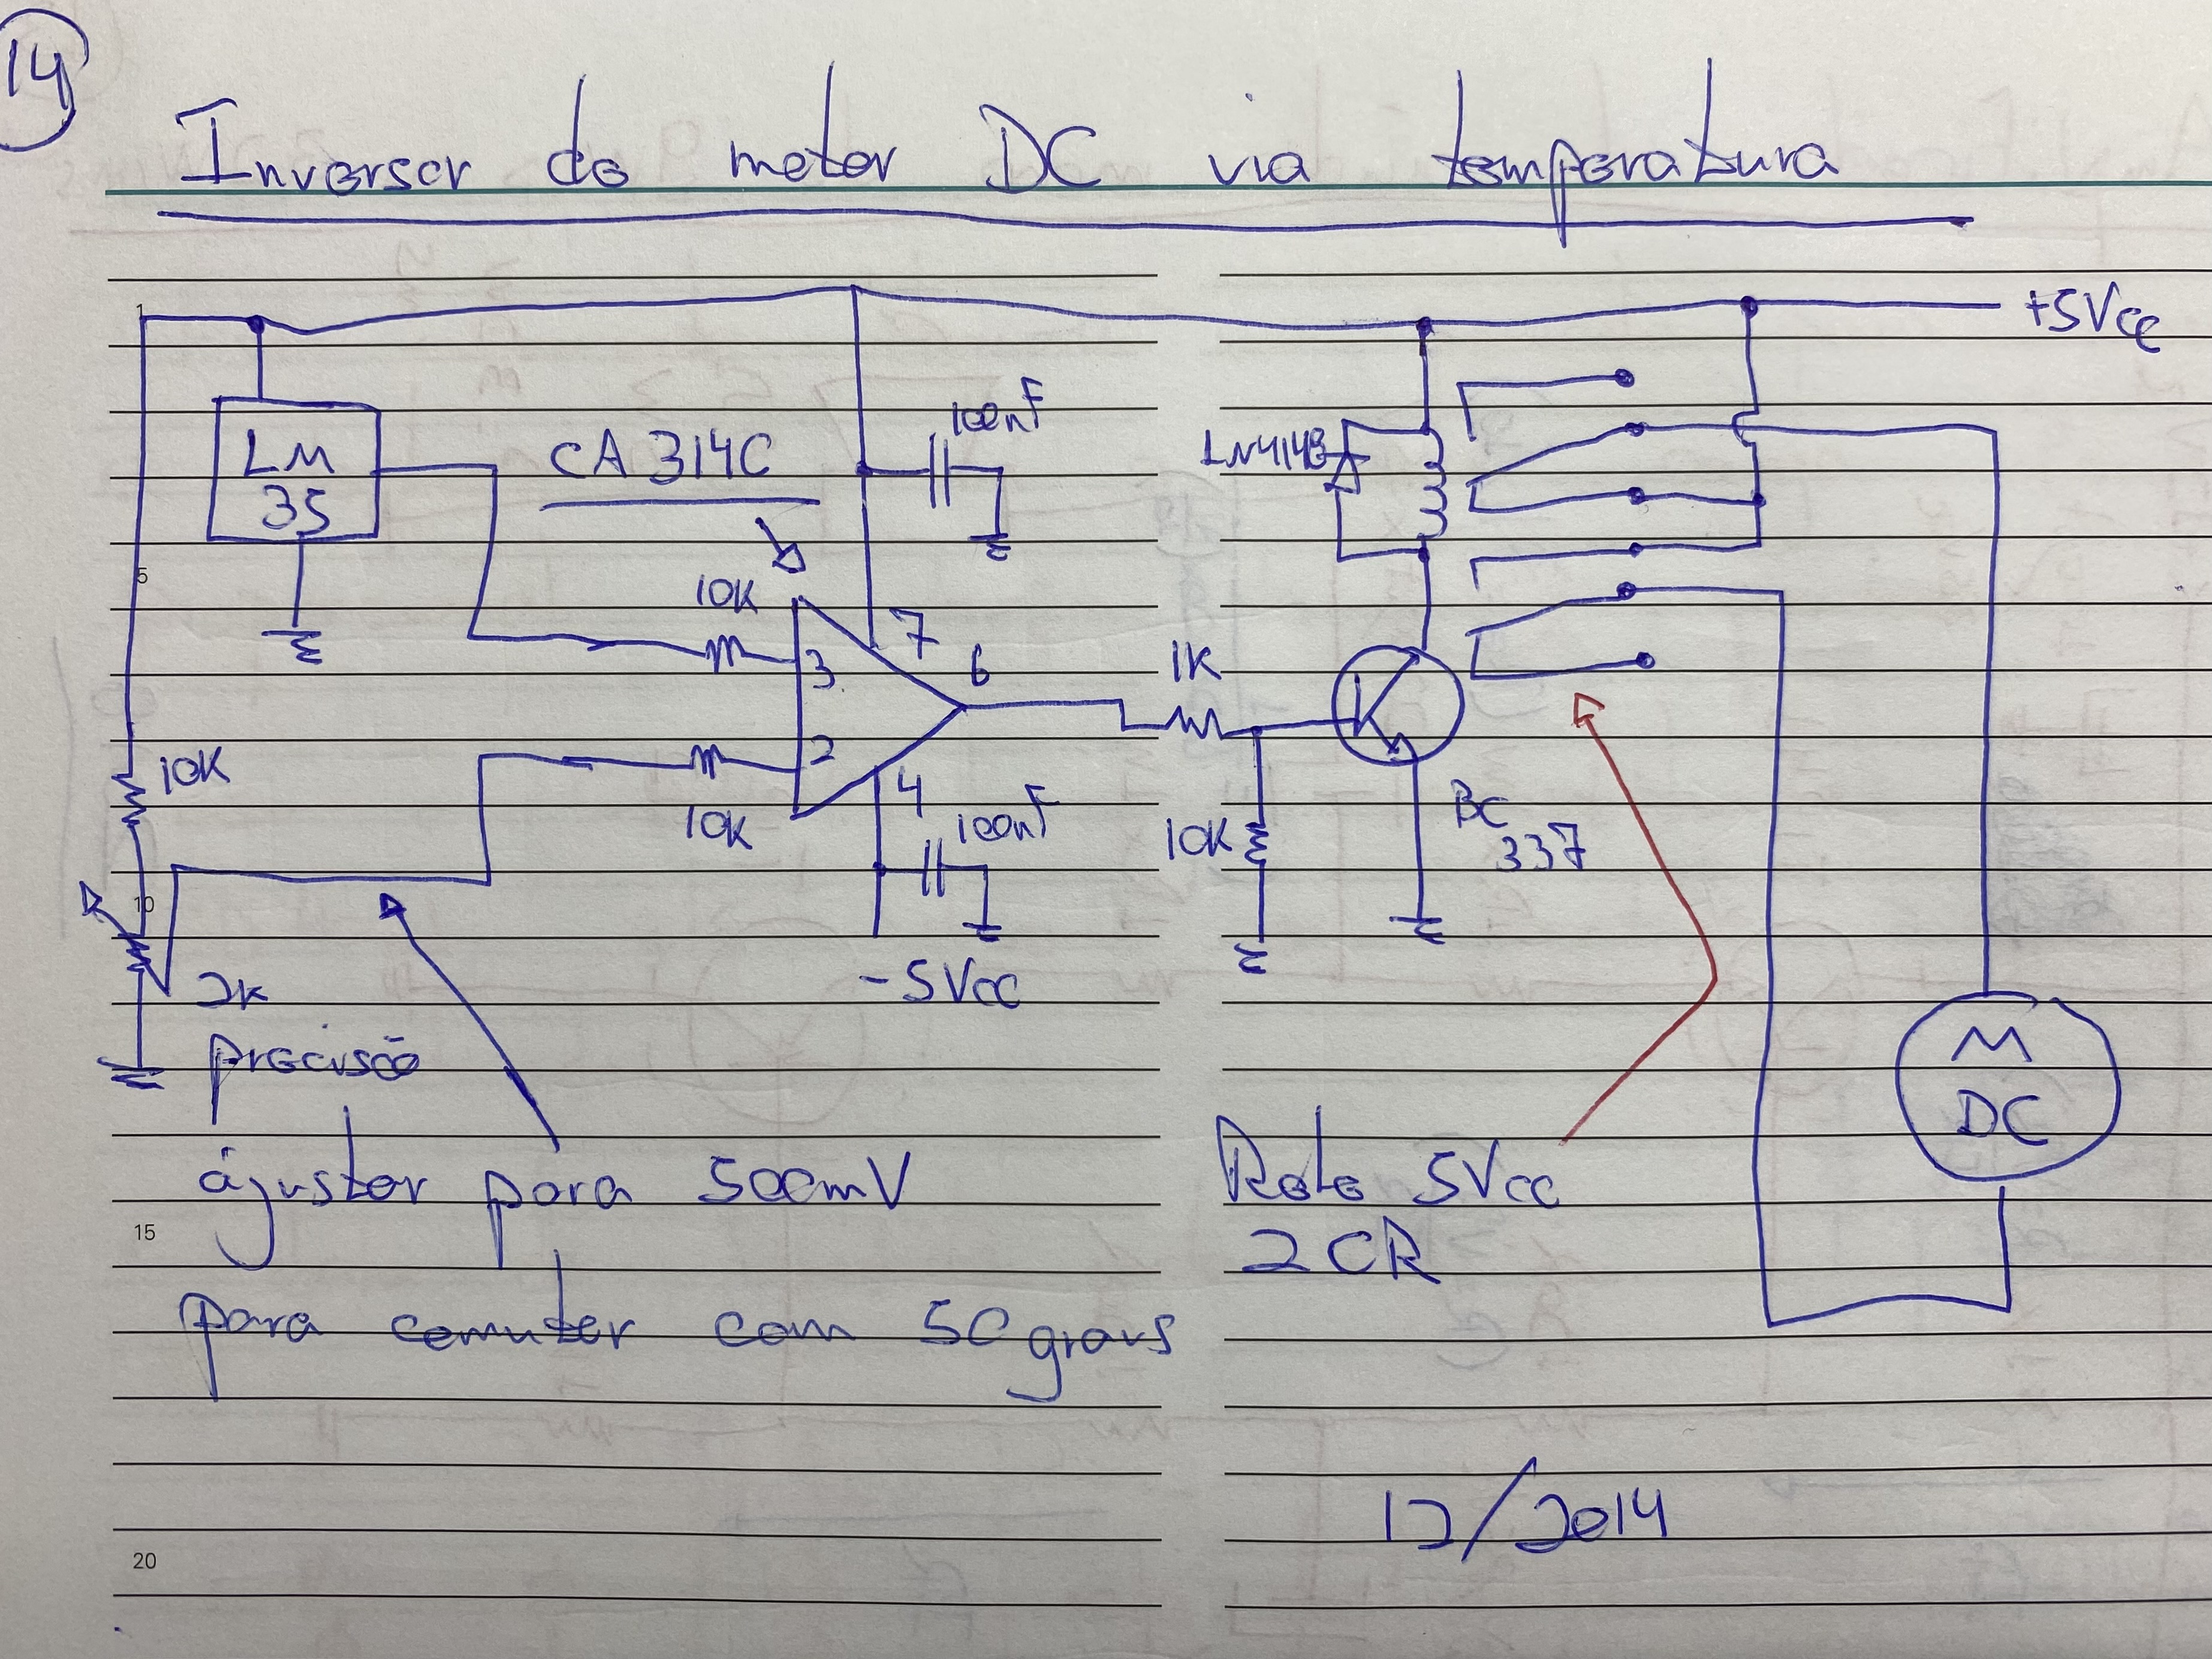 14
Inversor de motor DC via temperatura
1
+5Vcc
LM
35
CA 3140
100nF
1N4148
5
10K
7
3
6
1K
10K
2
10K
4
100nF
10K
BC
337
10
2K
-5Vcc
precisão
M
DC
ajustar para 500mV
Rele 5Vcc
15
2 CR
para comutar com 50 graus
12/2014
20